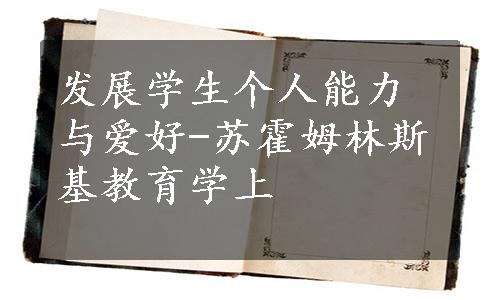 发展学生个人能力
与爱好-苏霍姆林斯
基教育学上